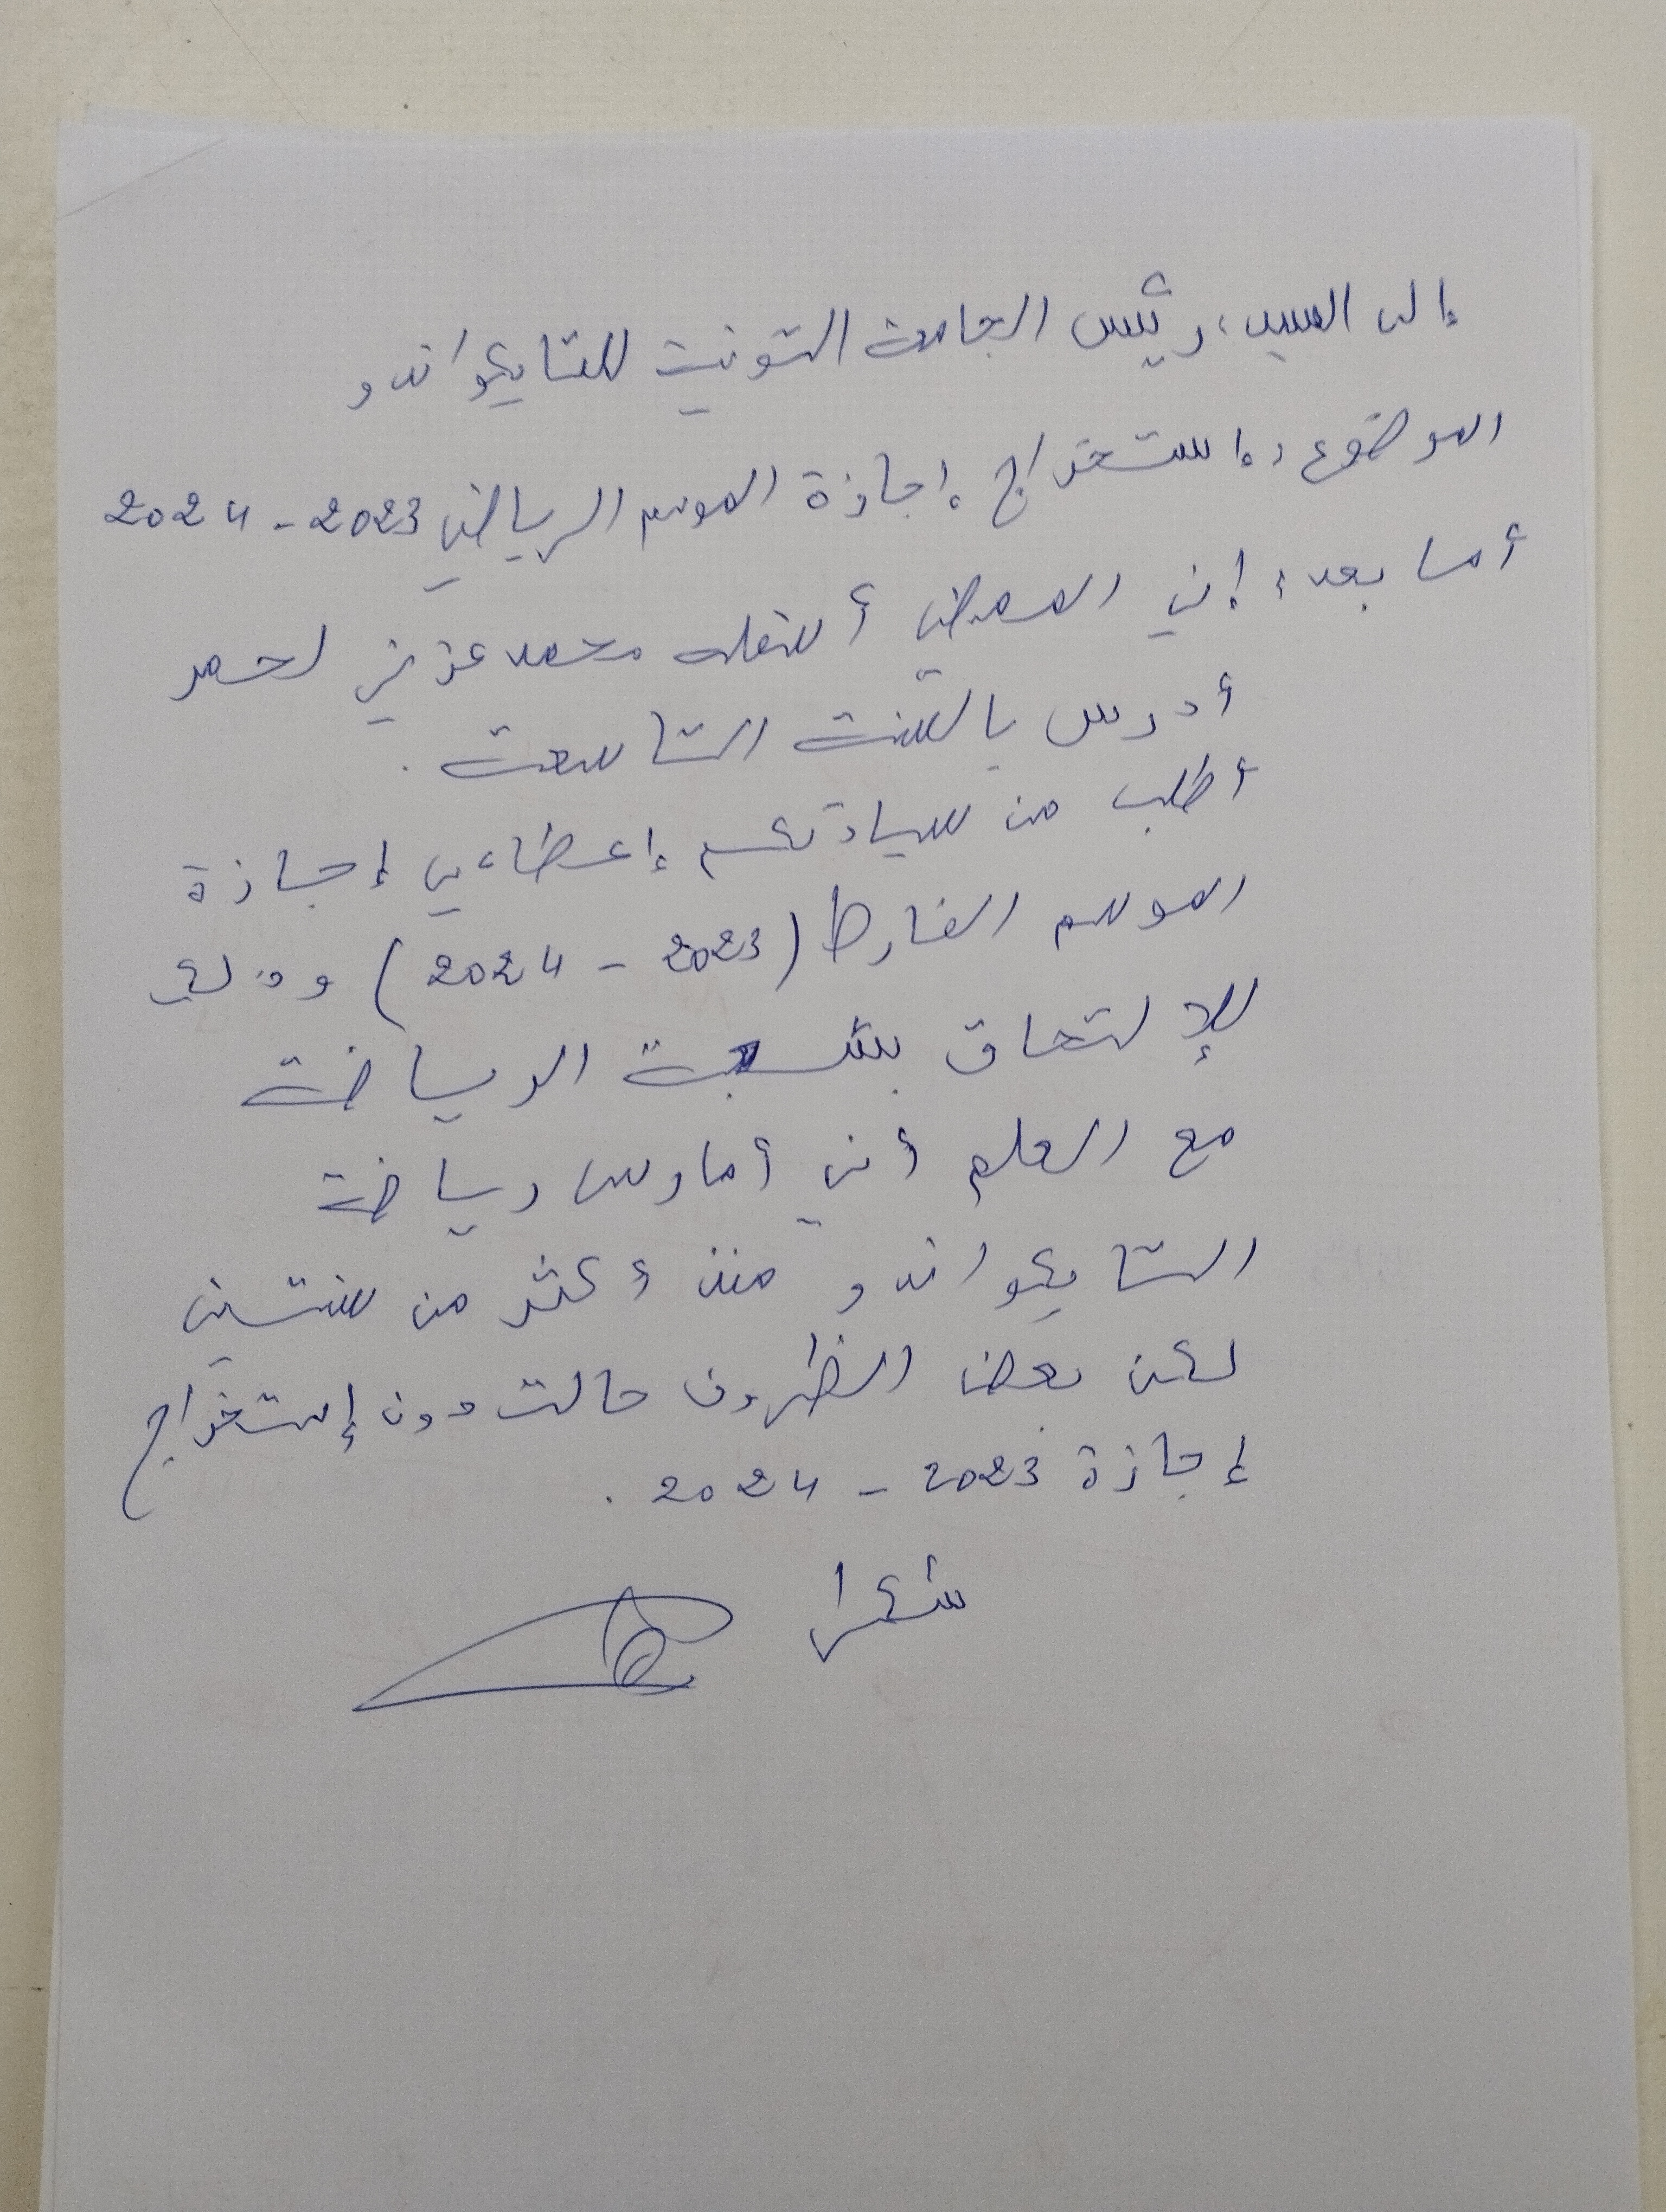 إلى السيد، رئيس الجامعة التونسية للتايكواندو
الموضوع: إستخراج إجازة الموسم الرياضي 2023 - 2024
أما بعد، إني الممضي أسفله محمد عزيز لحمر
أدرس بالسنة التاسعة.
أطلب من سيادتكم إعطاءي إجازة
الموسم الفارط (2023 - 2024) وذلك
للإلتحاق بشعبة الرياضة
مع العلم أني أمارس رياضة
التايكواندو منذ أكثر من سنتين
لكن بعض الظروف حالت دون إستخراج
إجازة 2023 - 2024.
شكرا